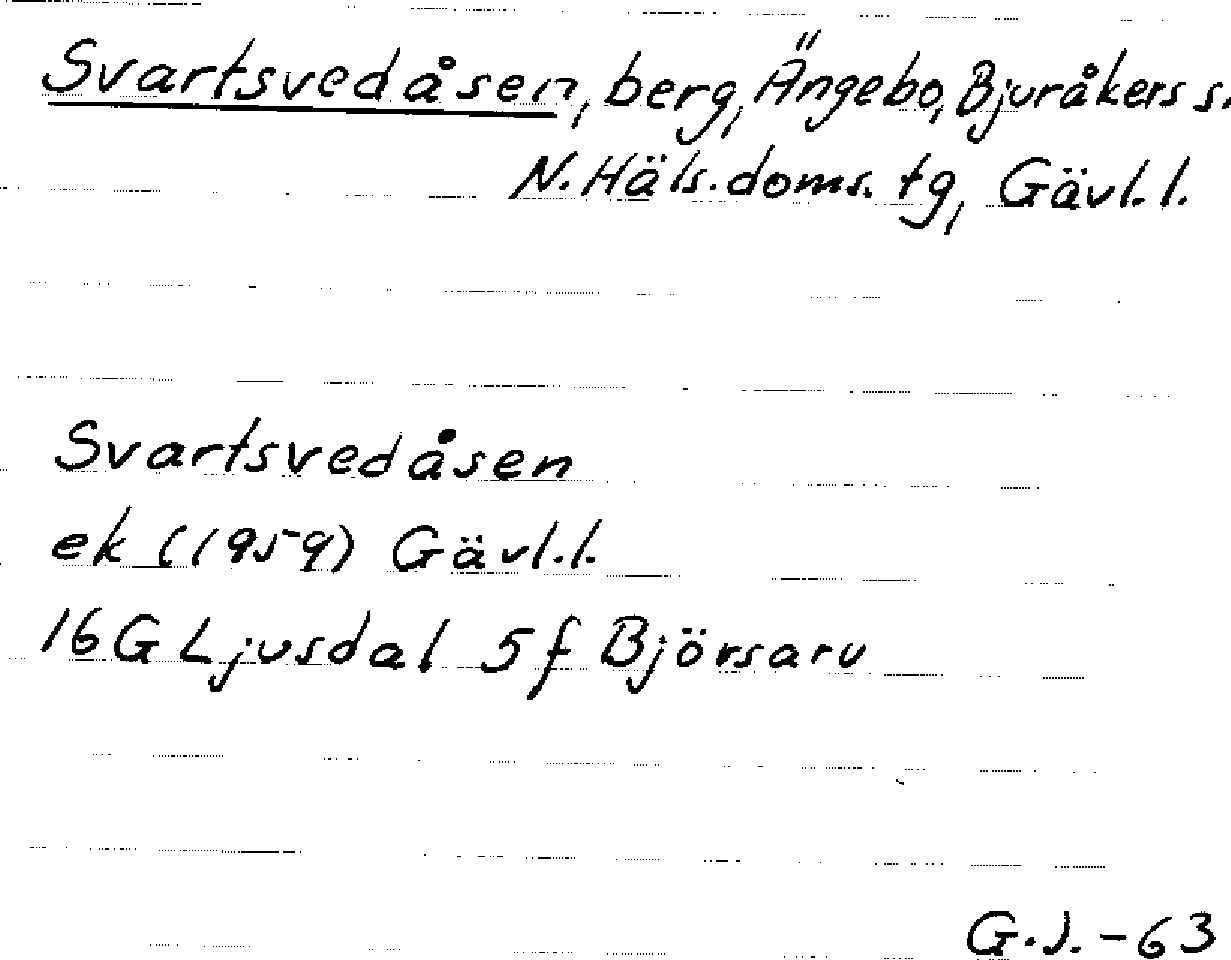 Svartsvedåsen, berg, Ängebo, Bjuråkers s.
N. Häls. doms. tg, Gävl. l.
Svartsvedåsen
ek (1959) Gävl. l.
16 G Ljusdal 5 f Björsarv
G.J. -63